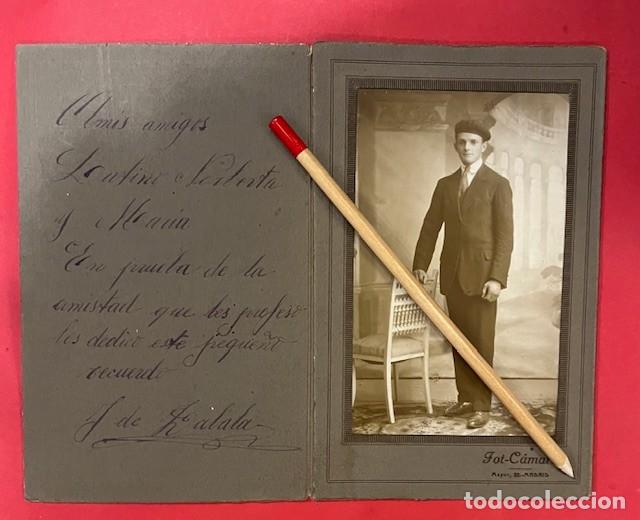 A mis amigos
y Maria
En prueba de la
amistad que les profeso
les dedico este pequeño
recuerdo
J de Zabala
Fot-Cámar
Mayor, MADRID
todocoleccion